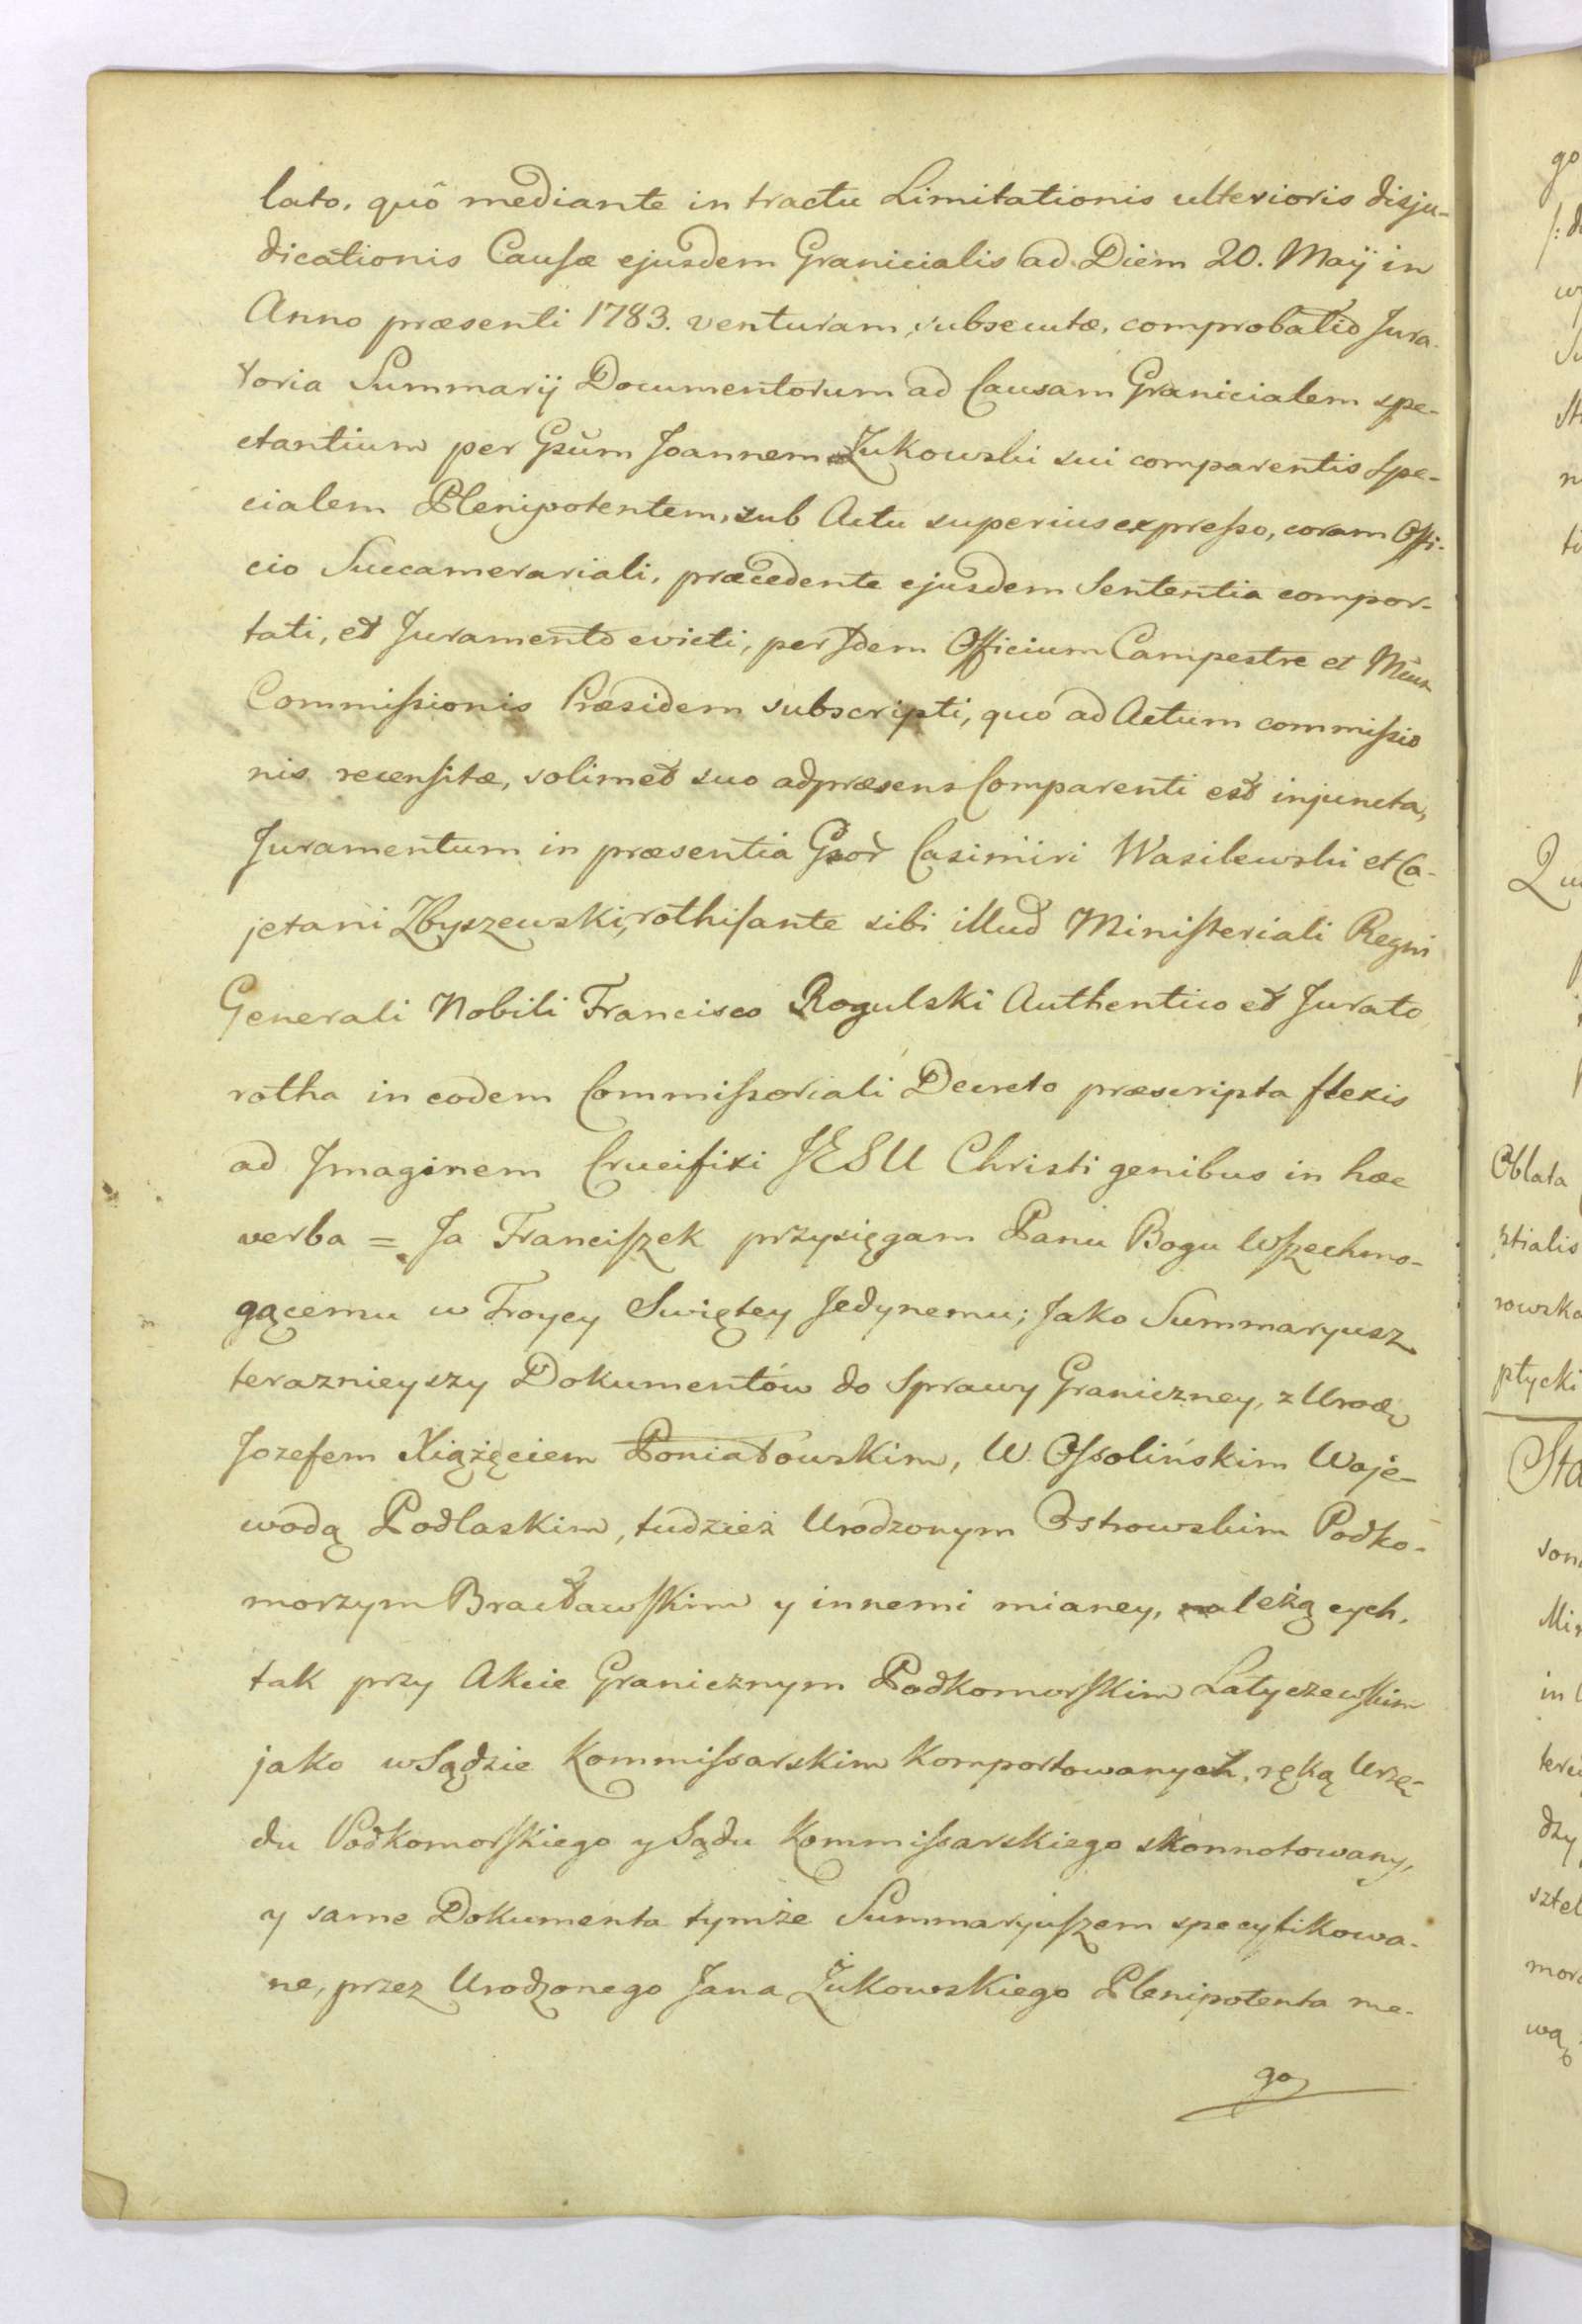 lato, quô mediante in tractu Limitationis ulterioris disju-
dicationis Causæ ejusdem Granicialis ad Diem 20. Maÿ in
Anno præsenti 1783. venturam, subsecutæ, comprobatio Jura-
toria Summarÿ Documentorum ad Causam Granicialem spe-
ctantium per Gsum Joannem Zukowski sui comparentis Spe-
cialem Plenipotentem, sub Actu superius expresso, coram Offi-
cio Succamerariali, præcedente ejusdem Sententia compor-
tati, et Juramento evicti, per Idem Officium Campestre et
Commissionis Præsidem subscripti, quo ad Actum commissio
nis recensitæ, solimet suo adpræsens Comparenti est injuncta,
Juramentum in præsentia Gsor Casimiri Wasilewski et Ca-
jetani Zbyszewski, rothisante sibi illud Ministeriali Regni
Generali Nobili Francisco Rogulski Authentico et Jurato
rotha in eodem Commissoriali Decreto præscripta flexis
ad Imaginem Crucifixi JESU Christi genibus in hæc
verba = Ja Franciszek przysięgam Panu Bogu Wszechmo-
gącemu w Troycy Swiętey Jedynemu; Jako Summaryusz
teraznieyszy Dokumentów do Sprawy Graniczney, z Urodz
Jozefem Xiążęciem Poniatowskim, W. Ossolińskim Woje-
wodą Podlaskim, tudzież Urodzonym Ostrowskim Podko-
morzym Bracławskim y innemi mianey, należących,
tak przy Akcie Granicznym Podkomorskim Latyczewskim
jako w Sądzie Kommissarskim Komportowanych, ręką Urzę-
du Podkomorskiego y Sądu Kommissarskiego skonnotowany,
y same Dokumenta tymże Summaryuszem specyfikowa-
ne, przez Urodzonego Jana Żukowskiego Plenipotenta me-
go
go
Oblata
stialis
rowska
ptycki